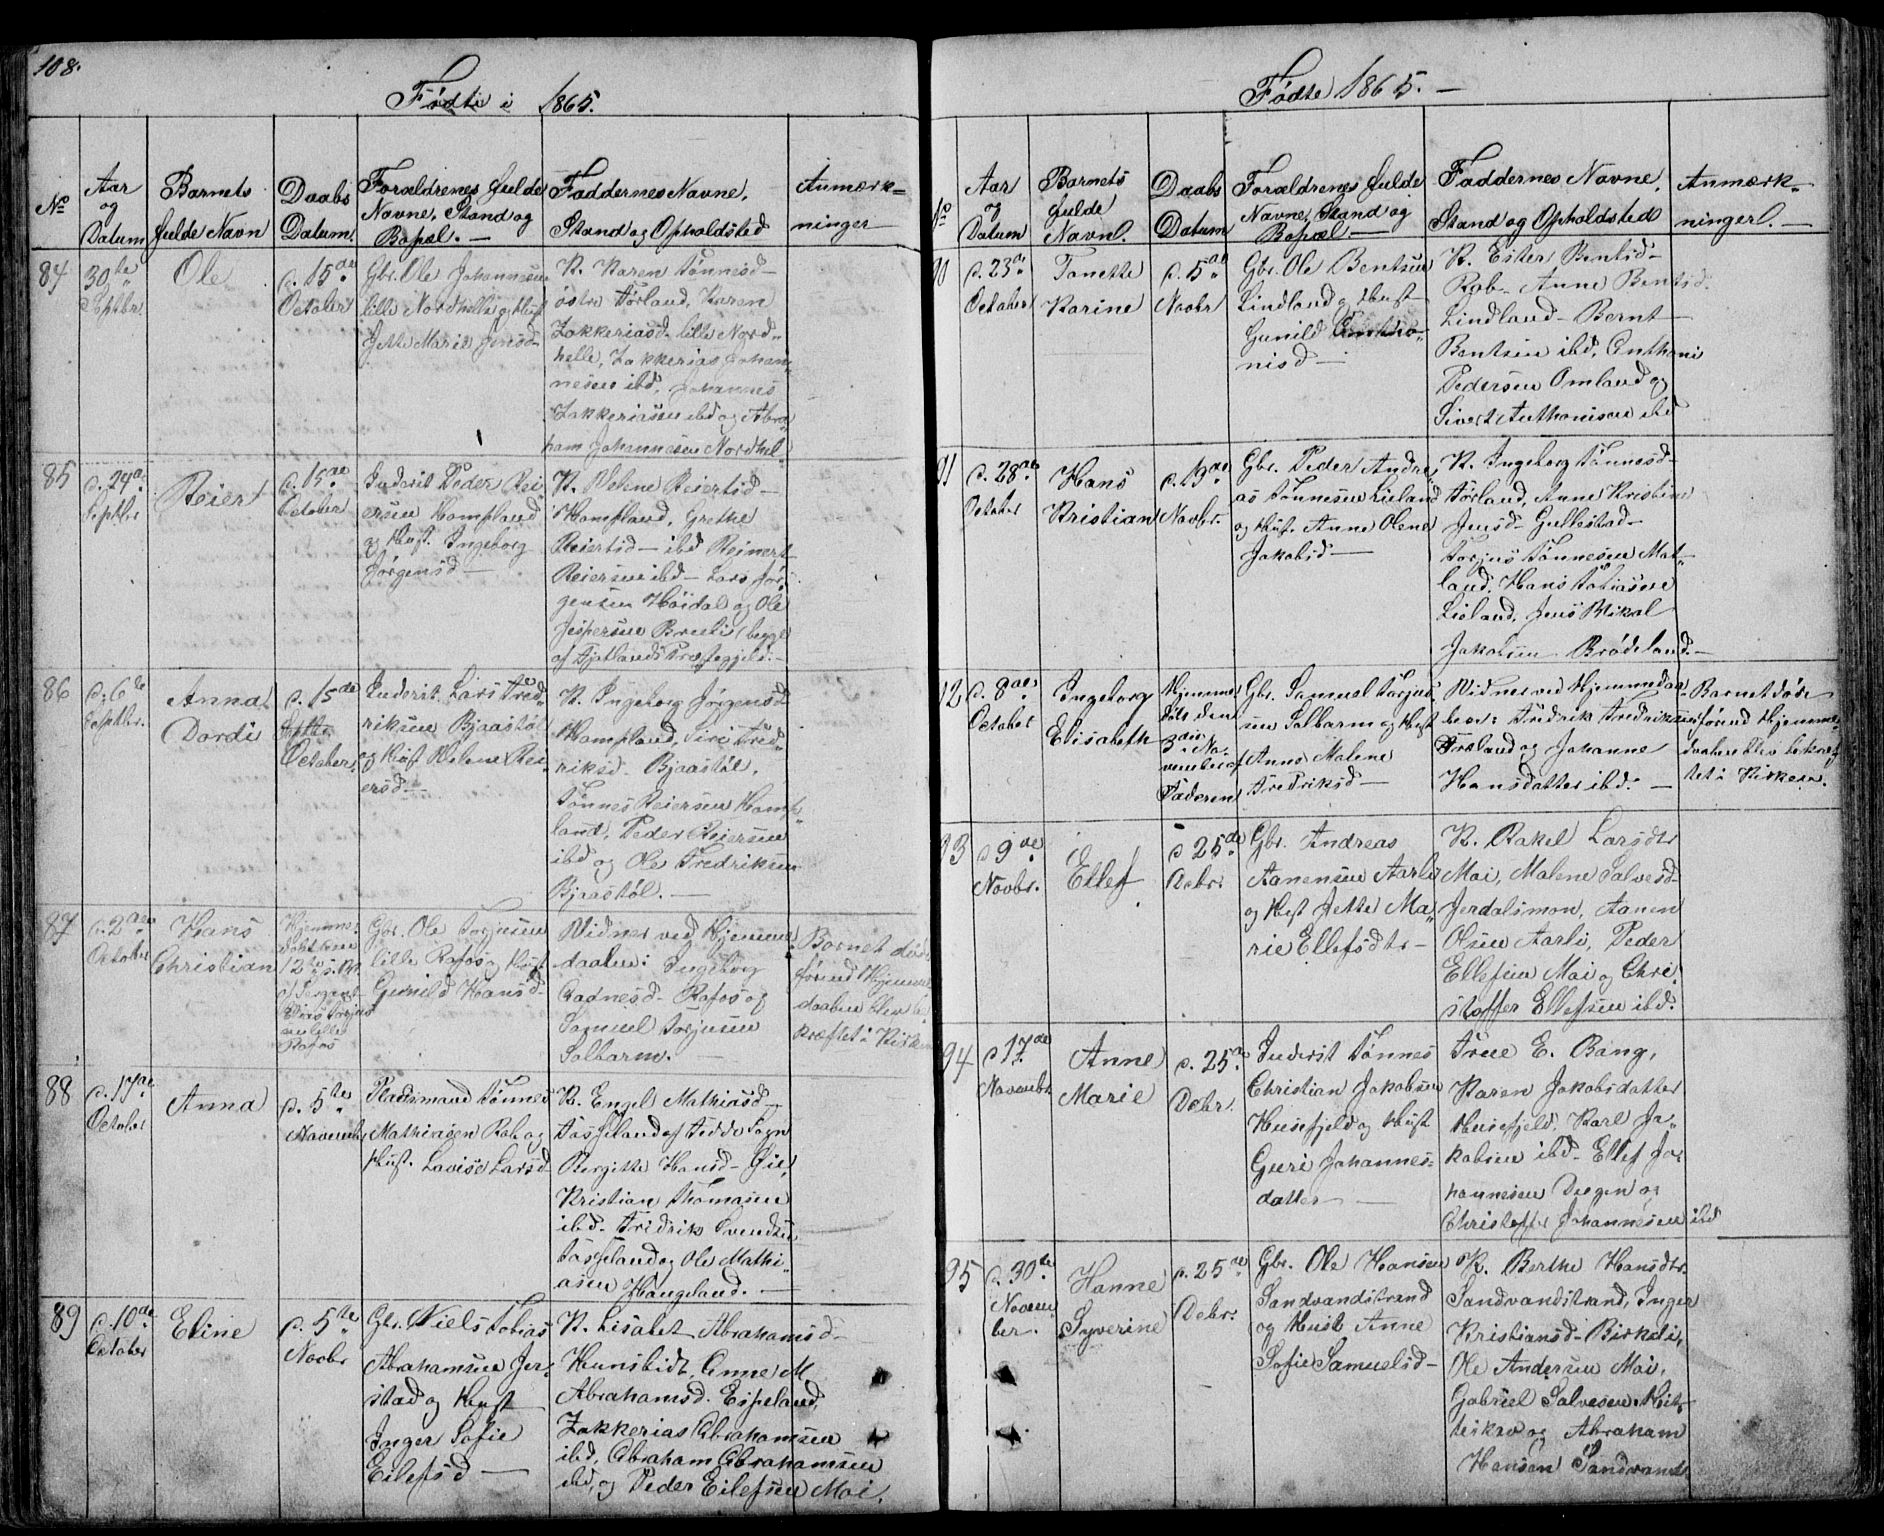 108.
Fødte i 1865.
No
Aar
og
Datum
Barnets
fulde Navn
Daabs
Datum.
Forældrenes fulde
Navne, Stand og
Bopæl. —
Faddernes Navne,
Stand og Opholdsted
Anmærk-
ninger
84
30te
Septbr.
Ole
d. 15de
October
Gbr. Ole Johannesen
lille Nordhelle og Hust
Jette Marie Jensd-
K. Karen Tønnesd-
østre Førland, Karen
Zakkeriasd- lille Nord-
helle, Zakkerias Johan-
nesen ibd, Johannes
Zakkeriasen ibd og Abra
ham Johannesen Nordhel-
85
d. 24de
Septbr
Reiert
d. 15de
October
Inderst Peder Rei-
ersen Hompland
og Hust. Ingeborg
Jørgensd—
K. Velene Reiertsd—
Hompland, Grethe
Reiertsd— ibd Reinert
Reiersen ibd— Lars Jør-
gensen Høidal og Ole
Jespersen Breeli (begge
af Fjotlands Præstegjeld.—
86
d. 6te
Septbr.
Anna
Dordi
d. 15de
October
Inderst Lars Fred-
riksen Bjaastøl
og Hust Helene Rei-
ersd—
K. Ingeborg Jørgensd
Hompland, Siri Fred-
riksd- Bjaastøl,
Tønnes Reiersen Homp-
land, Peder Reiersen
ibd og Ole Fredriksen
Bjaastøl. —
87
d. 2den
October
Hans
Christian
Hjemme-
døbt den
12te
af Sergeant
Elias Torjus
sen lille
Rafos
Gbr. Ole Torjusen
lille Rafos og Hust
Gunild Hansd-
Vidner ved Hjemme
daaben: Ingeborg
Aadnesd- Rafos og
Samuel Torjusen
Salbarm. —
Barnet døde
førend Hjemme
daaben blev be
kræftet i Kirken
88
d. 17de
October
Anna
d. 5te
November
Pladsmand Tønnes
Mathiasen Rob og
Hust. Lovise Larsd
K. Engel Mathiasd—
Josfeland af Fedde Sogn
Bergitte Hansd- Gie,
Kristian Thomasen
ibd- Fridrik Svendsen
Josfeland og Ole Mathi-
asen Haugeland. —
89
d. 10de
October
Eline
d. 5te
Novbr
Gbr. Niels Tobias
Abrahamsen Jer-
stad og Hust
Inger Sofie
Eilefsd —
K. Lisabet Abrahamsd—
Hunsbidt, Anne M.
Abrahamsd. Espeland,
Zakkerias Abrahamsen
ibd, Abraham Abrahamsen
ibd, og Peder Eilefsen Moi.
Fødte 1865. —
No
Aar
og
Datum
Barnets
fulde
Navn.
Daabs
Datum
Forældrenes fulde
Navne, Stand og
Bopæl —
Faddernes Navne,
Stand og Opholdsted
Anmærk-
ninger. —
90
d. 23de
October
Tonette
Karine
d. 5te
Novbr
Gbr. Ole Bentsen
Lindland og Hust
Gunild Antho-
nisd —
K. Ester Bentsd—
Rob- Anne Bentsd.
Lindland— Bernt
Bentsen ibd, Anthoni
Pedersen Omland og
Sivert Anthonisen ibd
91
d. 28de
October
Hans
Kristian
d. 19de
Novbr.
Gbr. Peder Andre-
as Tønnesen Lieland
og Hust. Anne Olene
Jakobsd—
K. Ingeborg Tønnesd—
Førland, Anne Kristine
Jensd- Gullestad-
Torjus Tønnesen Mot-
land. Hans Tobiasen
Lieland, Jens Mikal
Jakobsen Brødeland—
92
d. 8de
October
Ingeborg
Elisabeth
Hjemme
døbt den
3die No-
vember af
Faderen
Gbr. Samuel Torjus-
sen Salbarm og Hust
Anne Malene
Fredriksd—
Vidner ved Hjemmdaa-
ben: Fredrik Fredriksen
Træland og Johanne
Hansdatter ibd. —
Barnet døde
førend Hjemme
daaben blev bekræf-
tet i Kirken.
93
d 9de
Novbr.
Ellef
d 25de
Debr.
Gbr. Andreas
Aanensen Aarli
og Hust Jette Ma-
rie Ellefsdtr—
K. Rakel Larsdtr
Moi, Malene Salvesd—
Jerdalsmon, Aanen
Olsen Aarli, Peder
Ellefsen Moi og Chri-
stoffer Ellefsen ibd.
94
d 17de
November
Anne
Marie
d. 25de
Debr.
Inderst Tønnes
Christian Jakobsen
Husefjeld og Hust
Guri Johannes-
datter —
Frue E. Bang,
Karen Jakobsdatter
Husefjeld, Karl Ja-
kobsen ibd- Ellef Jo-
hannesen Dugan og
Christoffer Johannesen ibd
95
d. 30te
Novem
ber.
Hanne
Syverine
d. 25de
Debr.
Gbr. Ole Hansen
Sandvandstrand
og Hust Anne
Sofie Samuelsd—
K. Berthe Hansdtr.
Sandvandstrand, Inger
Kristiansd- Birkeli,
Ole Andersen Moi,
Gabriel Salvesen Kit-
tiskro og Abraham
Hansen Sandvandst